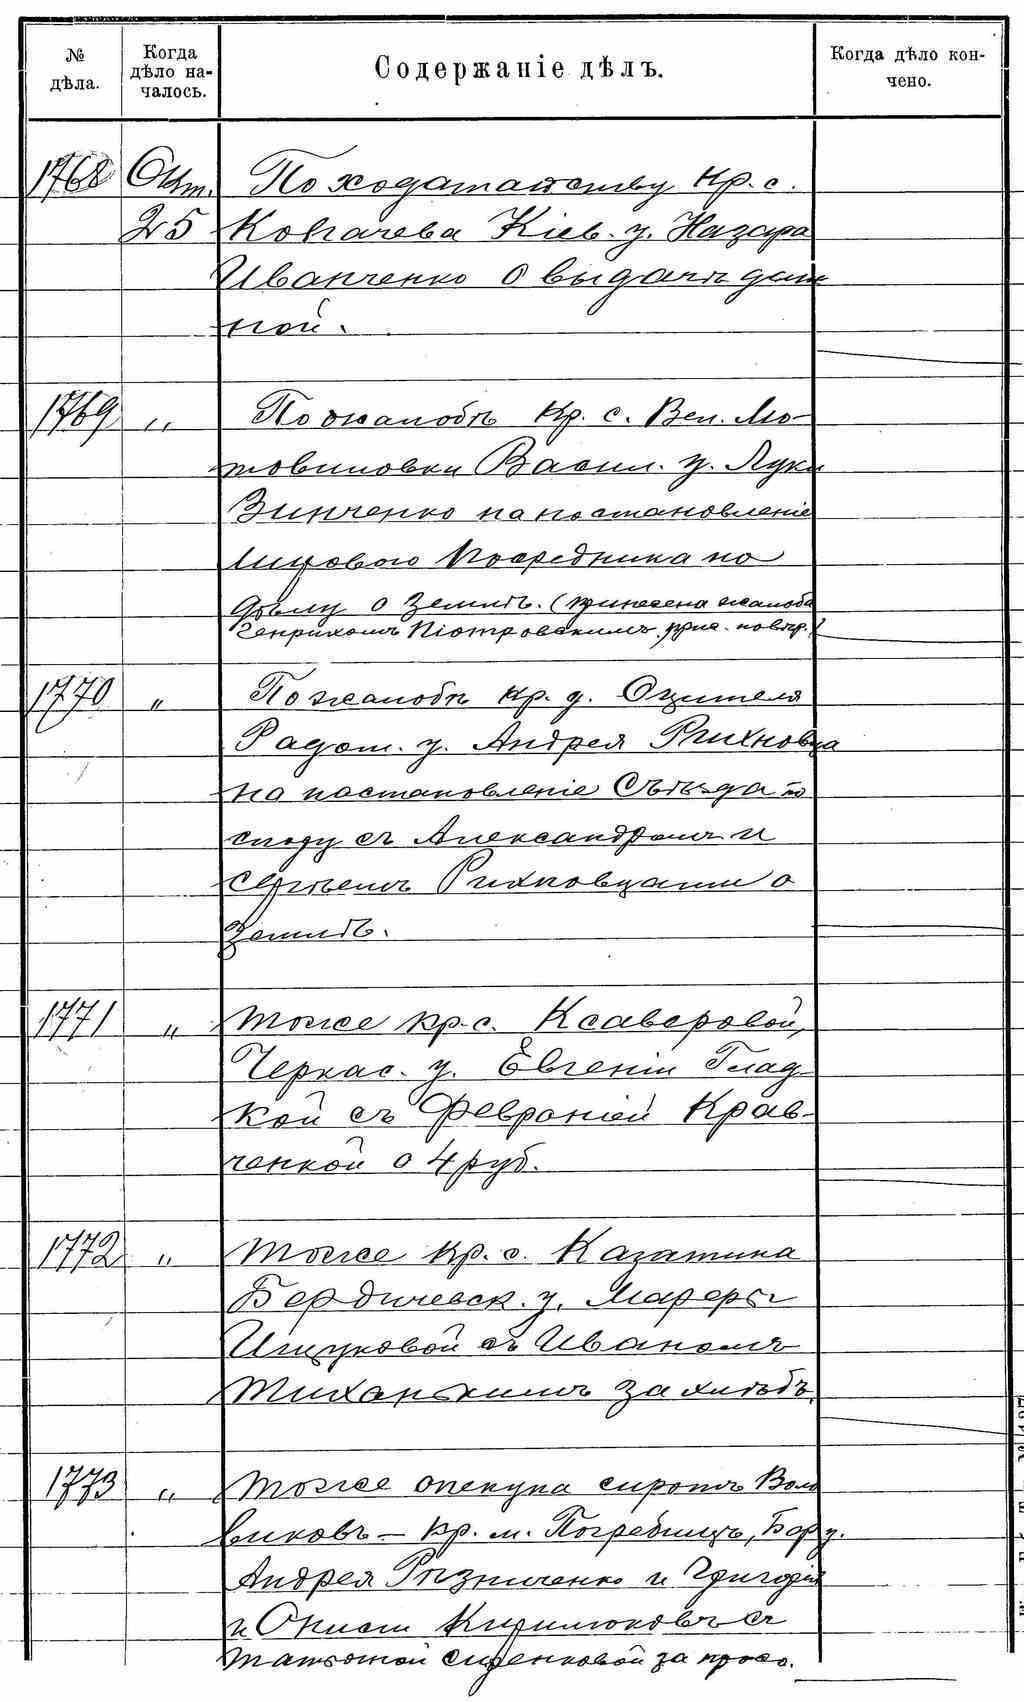 № дѣла.
Когда дѣло началось.
Содержаніе дѣлъ.
Когда дѣло кончено.
1768 Окт. По ходатайству кр. с.
25 Ковачева Кіев. у. Назара
Иванченко о выдачѣ дан
ной.
1769 " По жалобѣ кр. с. Вел. Мо-
товиловки Васил. у. Луки
Зинченко на постановленіе
Мирового Посредника по
дѣлу о землѣ. (принесена жалоба
Генрихомъ Піотровскимъ, прис. повѣр.)
1770 " По жалобѣ кр. д. Оцителя
Радом. у. Андрея Рихновца
на постановленіе Съѣзда по
споду съ Александромъ и
Сергѣемъ Рихновцами о
землѣ.
1771 " тоже кр. с. Ксаверовой,
Черкас. у. Евгеніи Глад-
кой съ Февроніей Крав-
ченкой о 4 руб.
1772 " тоже кр. с. Казатина
Бердичевск. у. Марѳры
Ищуковой съ Иваномъ
Тиханькимъ за хлѣбъ.
1773 " тоже опекуна сиротъ Воло
виковъ – кр. м. Погребищъ, Бер у.
Андрея Рѣзниченко и Григорія
и Онисіи Кирилюковъ съ
Татьяной Сиренковой за просо.